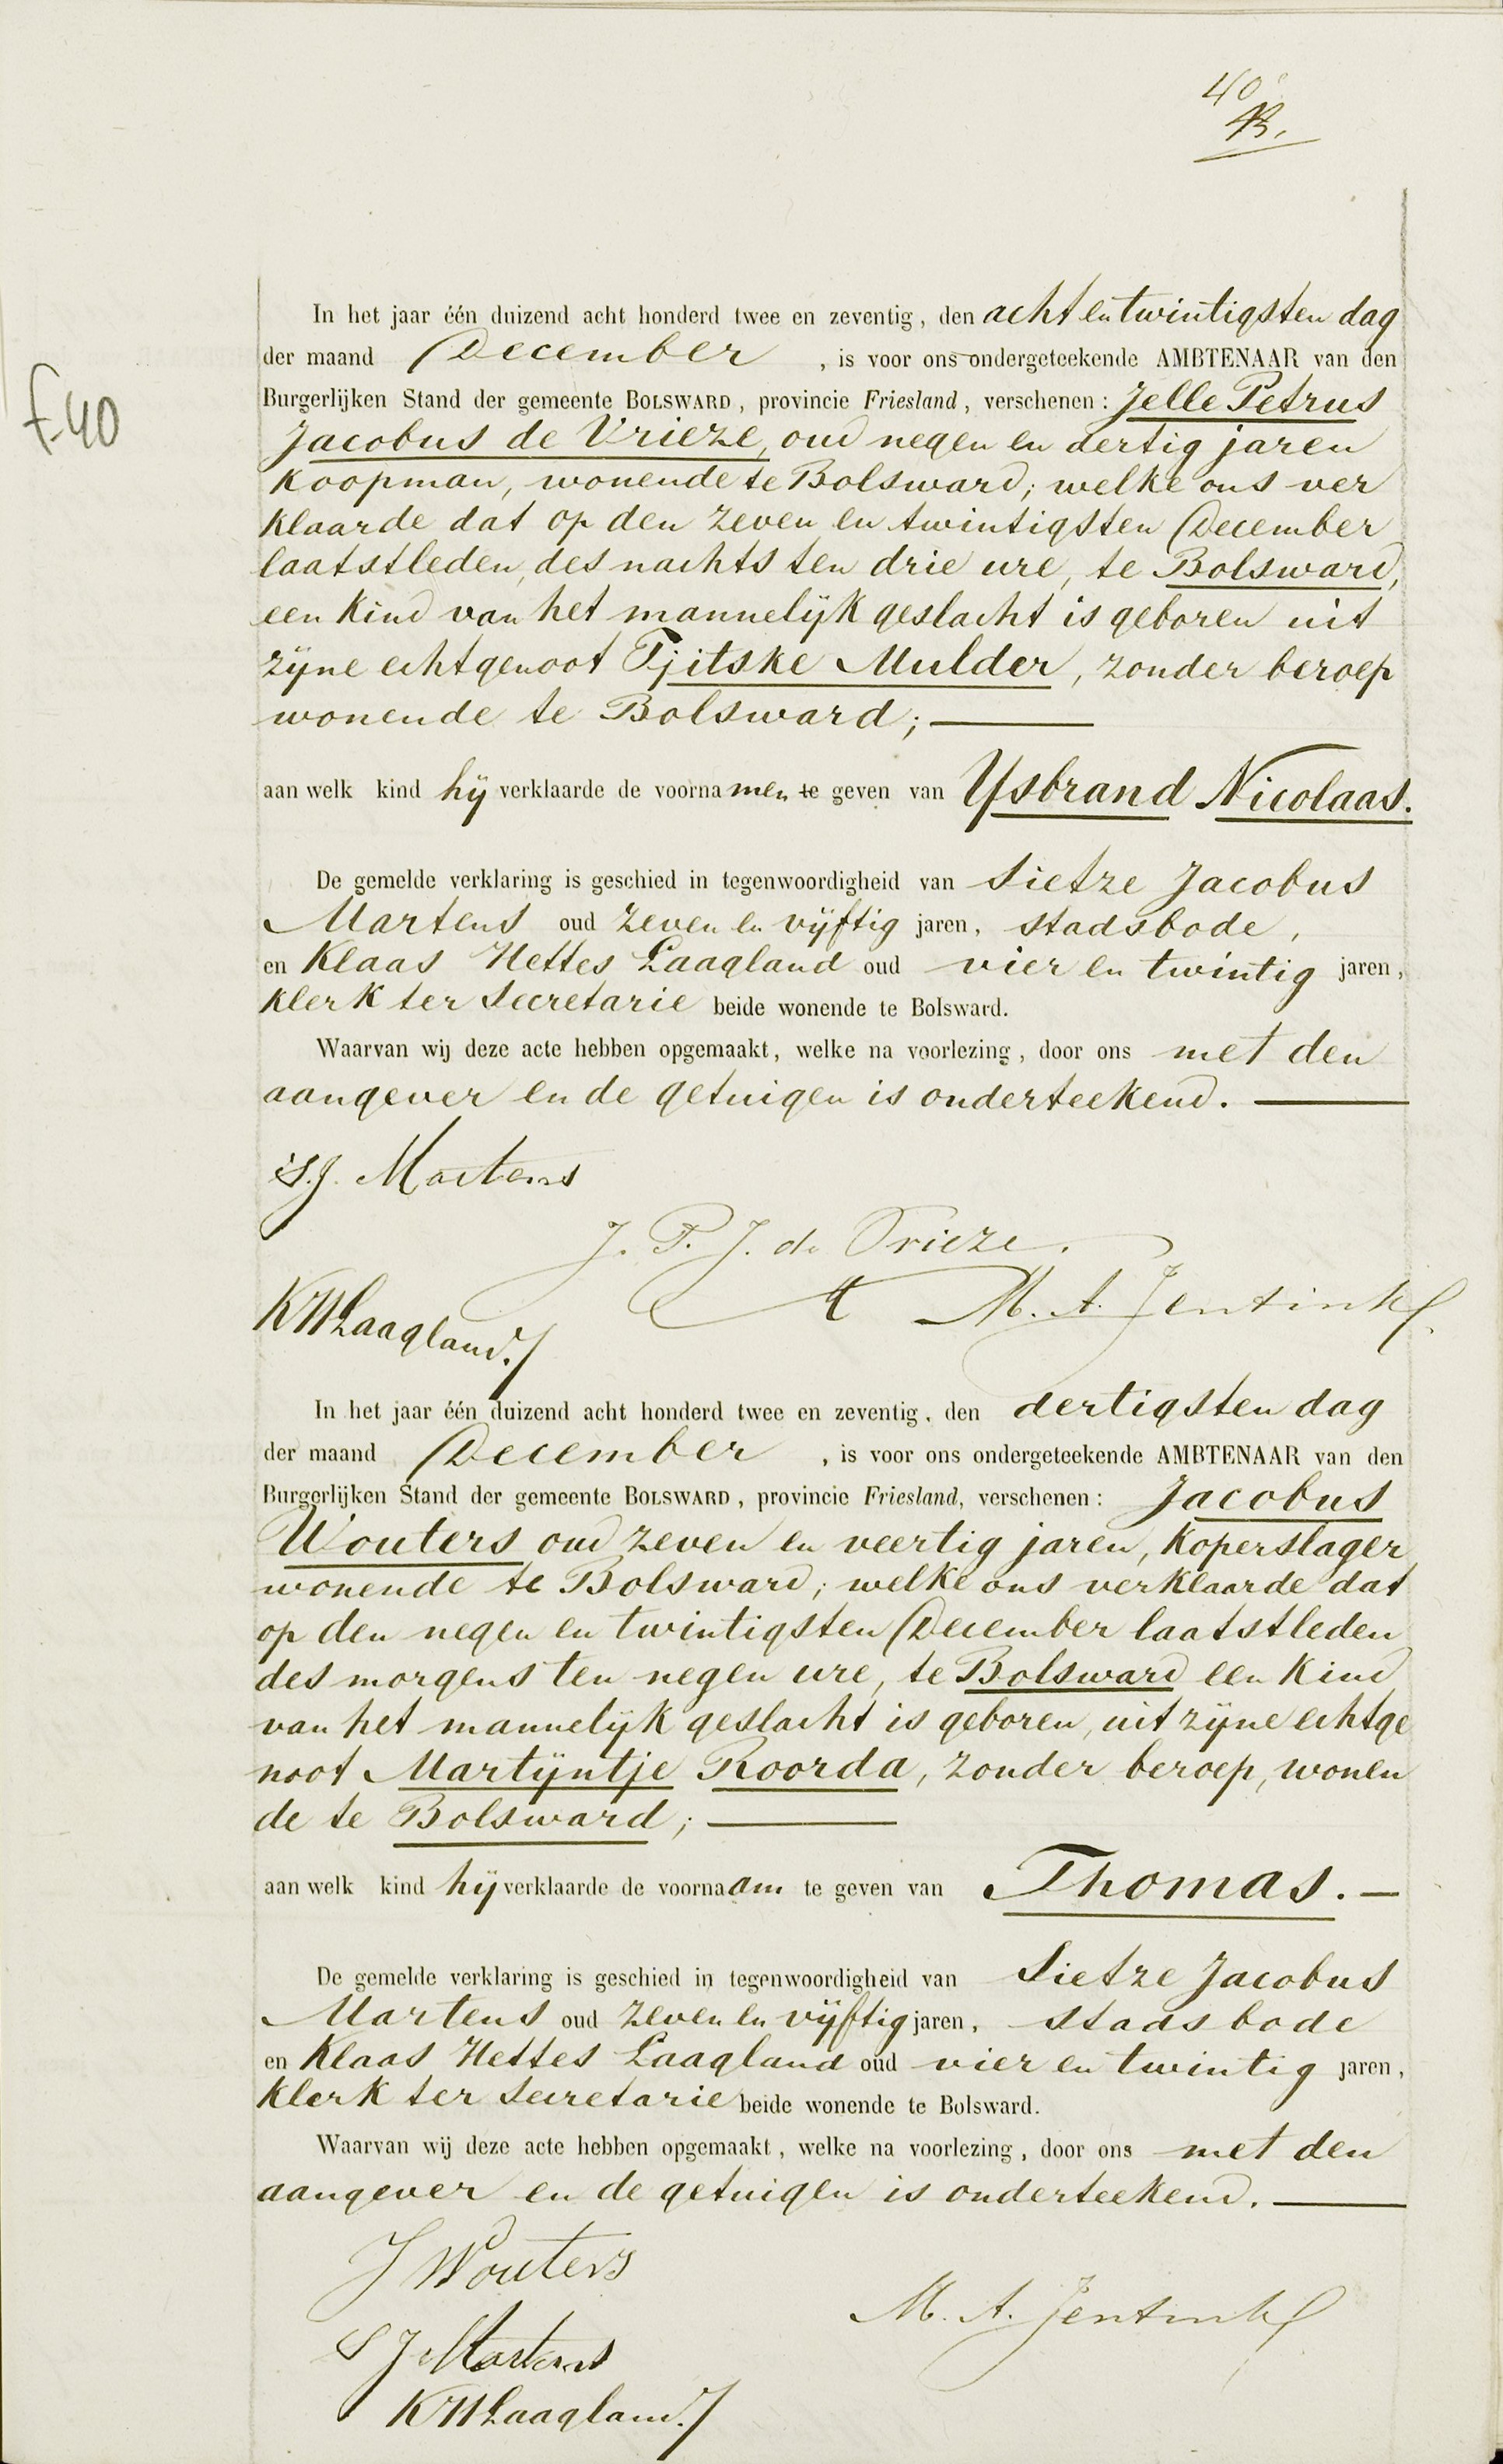 40
f. 40
In het jaar één duizend acht honderd twee en zeventig, den acht en twintigsten dag
der maand December, is voor ons ondergeteekende AMBTENAAR van den
Burgerlijken Stand der gemeente BOLSWARD, provincie Friesland, verschenen: Jelle Petrus
Jacobus de Vrieze, oud negen en dertig jaren
Koopman, wonende te Bolsward; welke ons ver
klaarde dat op den zeven en twintigsten December
laatstleden, des nachts ten drie ure, te Bolsward,
een kind van het mannelijk geslacht is geboren uit
zijne echtgenoot Tjitske Mulder, zonder beroep
wonende te Bolsward;
aan welk kind hij verklaarde de voornamen te geven van Ysbrand Nicolaas.
De gemelde verklaring is geschied in tegenwoordigheid van Sietze Jacobus
Martens oud zeven en vijftig jaren, stadsbode,
en Klaas Hettes Laagland oud vier en twintig jaren,
klerk ter Secretarie beide wonende te Bolsward.
Waarvan wij deze acte hebben opgemaakt, welke na voorlezing, door ons met den
aangever en de getuigen is onderteekend.
S.J. Martens
J. P. J. de Vrieze.
M. A. Jentink
KHLaagland.
In het jaar één duizend acht honderd twee en zeventig, den dertigsten dag
der maand December, is voor ons ondergeteekende AMBTENAAR van den
Burgerlijken Stand der gemeente BOLSWARD, provincie Friesland, verschenen: Jacobus
Wouters oud zeven en veertig jaren, Koperslager,
wonende te Bolsward; welke ons verklaarde dat
op den negen en twintigsten December laatstleden
des morgens ten negen ure, te Bolsward een kind
van het mannelijk geslacht is geboren, uit zijne echtge
noot Martijntje Roorda, zonder beroep, wonen
de te Bolsward;
aan welk kind hij verklaarde de voornaam te geven van Thomas.
De gemelde verklaring is geschied in tegenwoordigheid van Sietze Jacobus
Martens oud zeven en vijftig jaren, stadsbode
en Klaas Hettes Laagland oud vier en twintig jaren,
klerk ter Secretarie beide wonende te Bolsward.
Waarvan wij deze acte hebben opgemaakt, welke na voorlezing, door ons met den
aangever en de getuigen is onderteekend.
J Wouters
M. A. Jentink
S J Martens
KHLaagland.